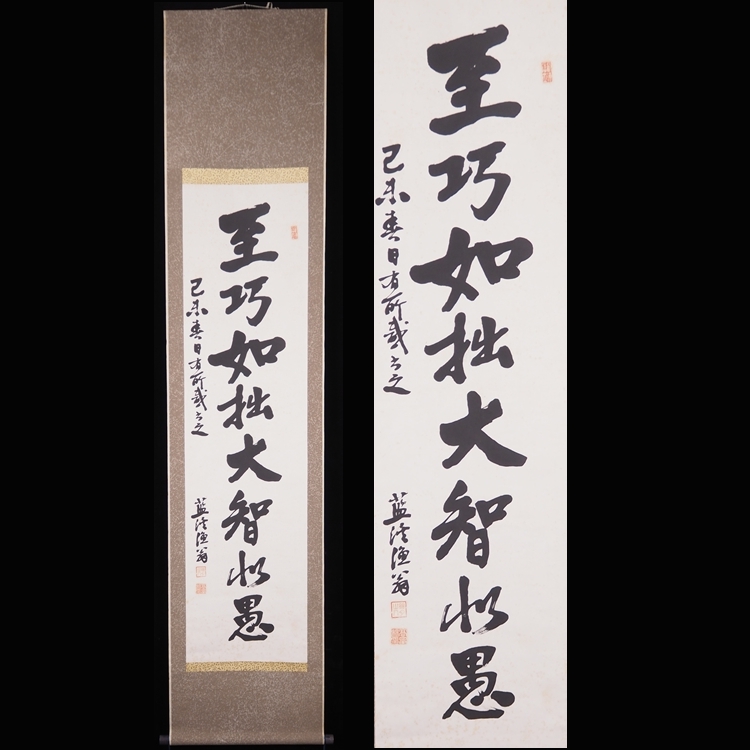 至巧如拙大智似愚
己未春日有所感書之
藍溪漁翁
至巧如拙大智似愚
己未春日有所感書之
藍溪漁翁